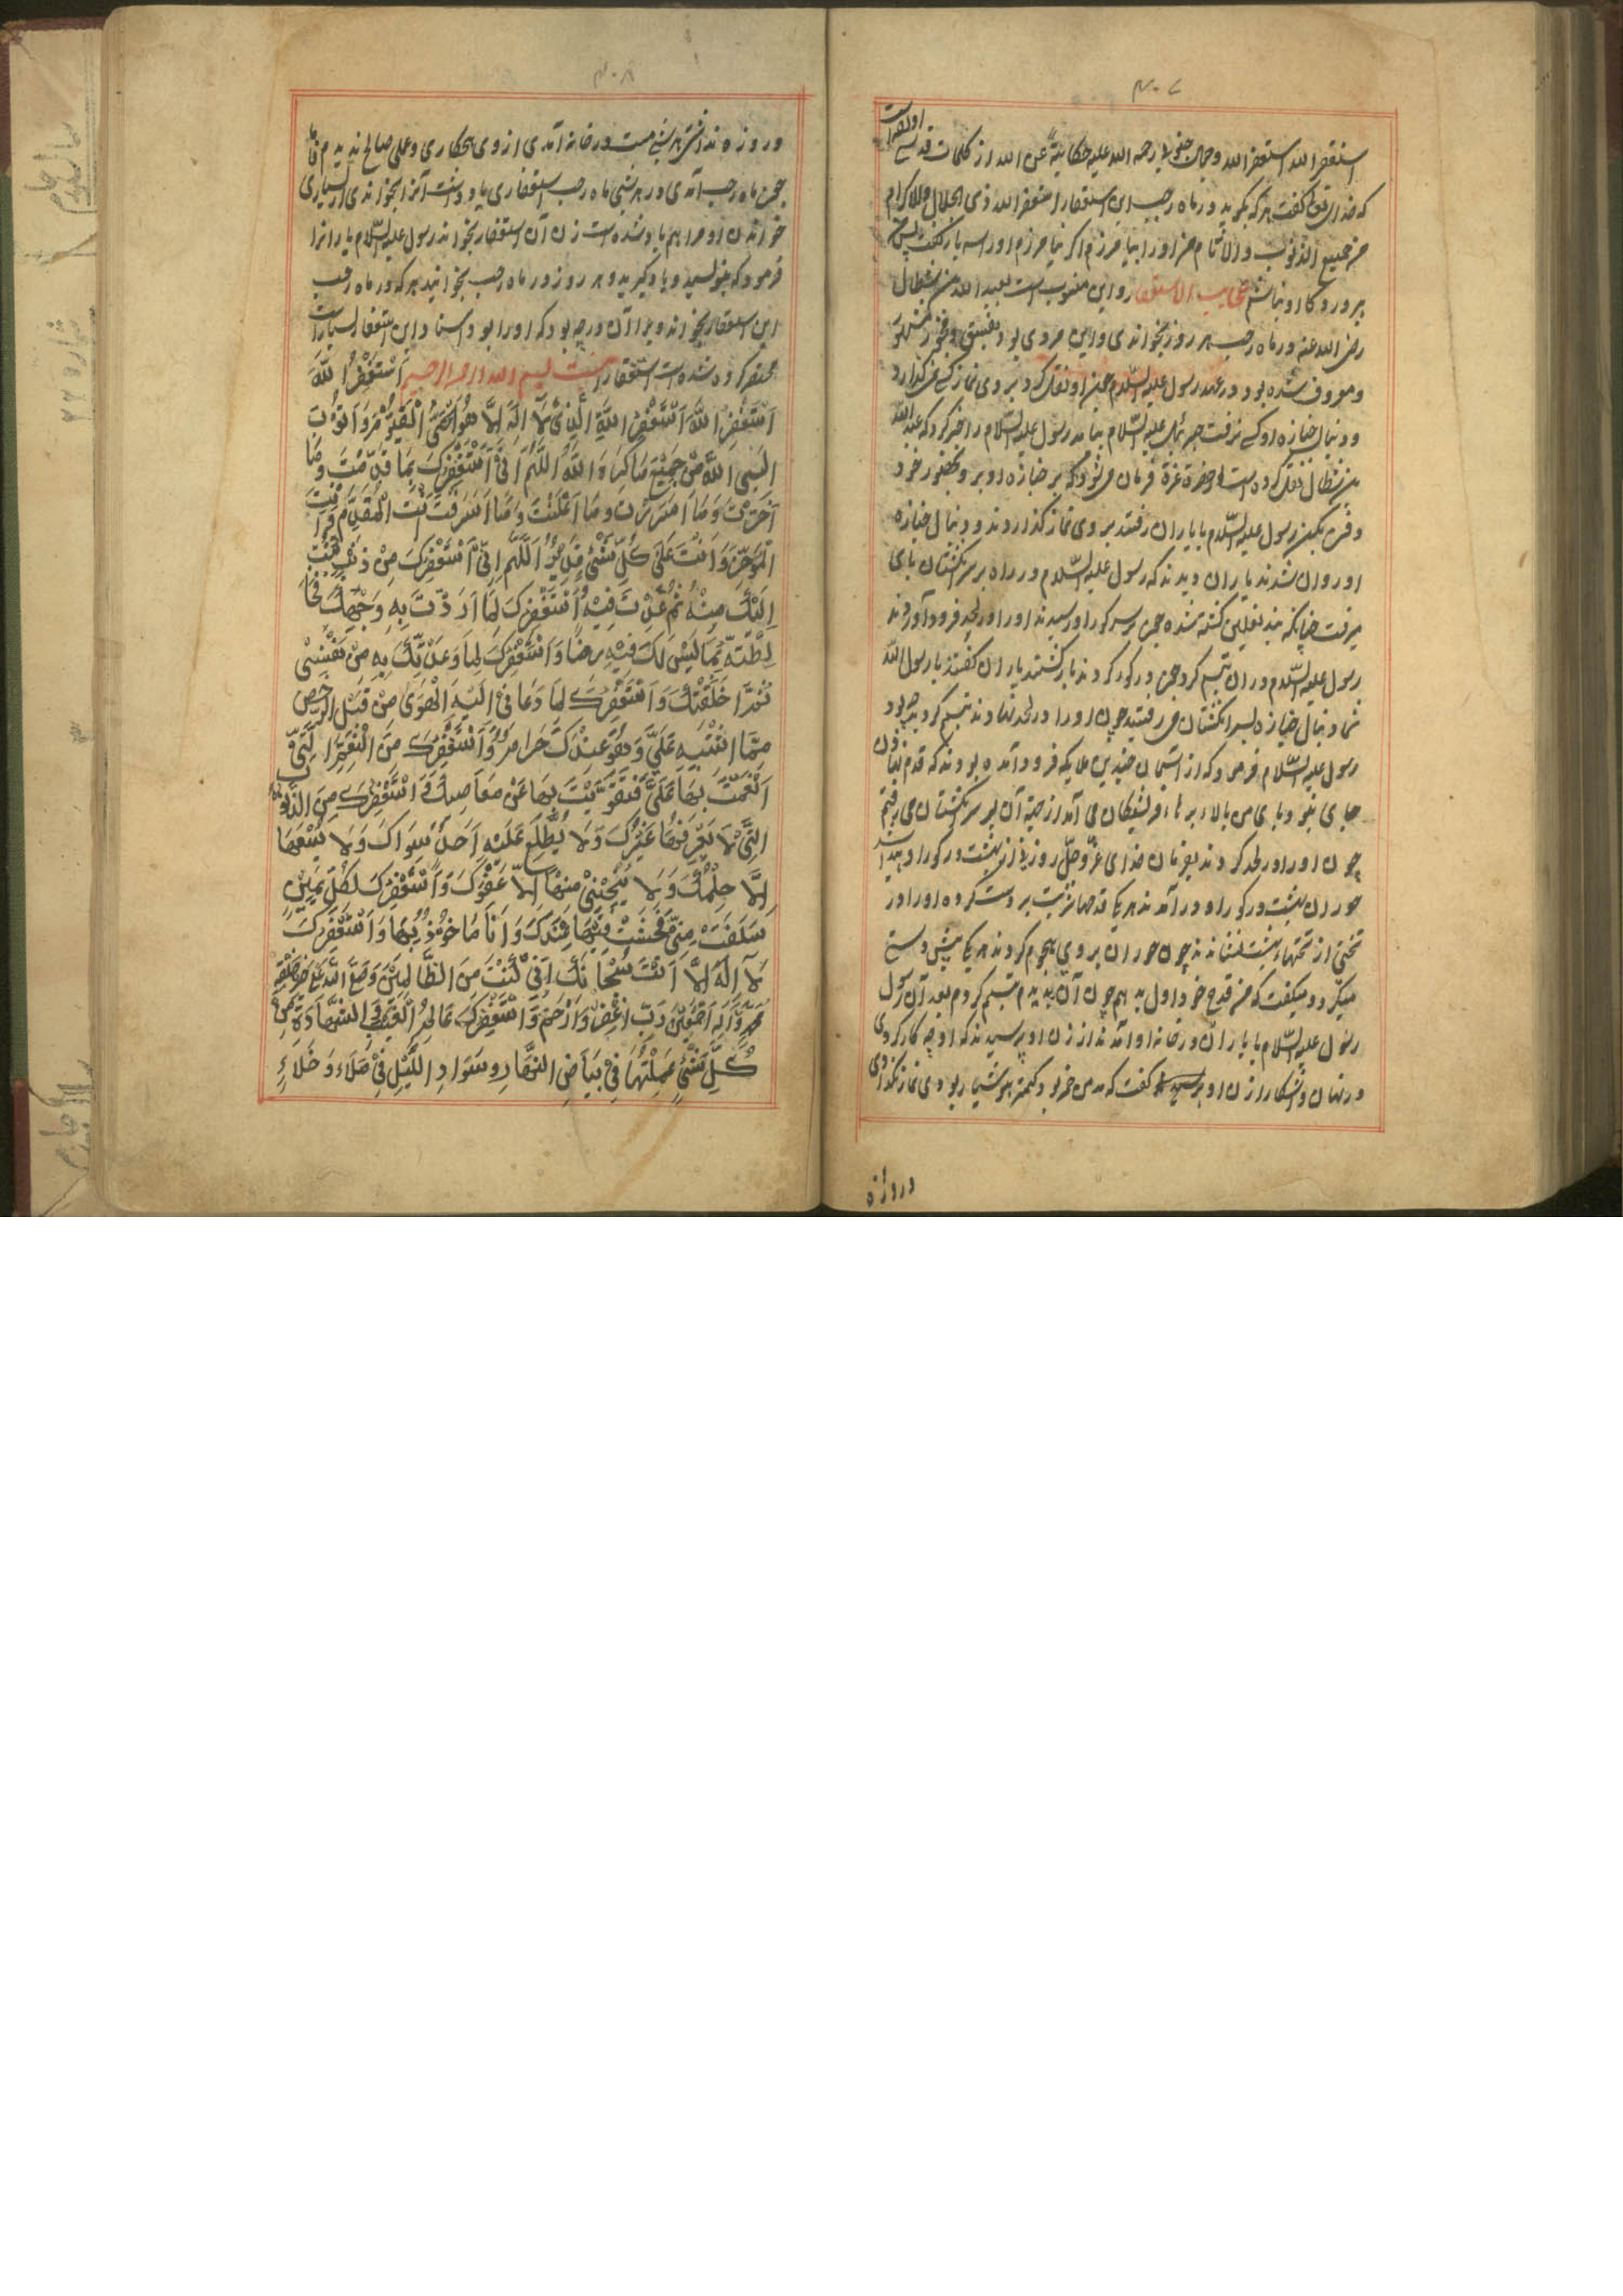 ۳۰۷
اولقراست
استغفر الله استغفر الله وجمال خنوی رحمه الله علیه حکایتة عن الله از کلمات قدسی
که خدای تعالی گفت هر که بگوید در ماه رجب این استغفار استغفر الله ذی الجلال والاکرام
من جمیع الذنوب والآثام من او را بیامرزم اگر نیامرزم او را سه بار گفت پس
پروردگار او نباشم عجایب الاستغفار و این منسوب است بعبد الله بن سطال
رضی الله عنه در ماه رجب هر روز بخواندی و این مردی بود بفسق و فجور مشهور
و معروف شده بود در عهد رسول علیه السلام چون او نقل کرد بر وی نماز کسی نمی گذارد
و دنبال جنازه او کسی نرفت جبرئیل علیه السلام بیامد رسول علیه السلام را خبر کرد که عبد الله
بن سطال نقل کرده است از حضرة عزة فرمان میشود که بر جنازه او برو و بحضور خود
دفن بکن رسول علیه السلام با یاران رفتند بر وی نماز گذاردند و دنبال جنازه
او روان شدند یاران دیدند که رسول علیه السلام در راه بر سر انگشتان پای
میرفت چنانکه بند نعلین کشته شده چون بر سر کور او رسیدند او را در لحد فرود آوردند
رسول علیه السلام در ان تبسم کرد چون در کور کردند باز گشتند یاران گفتند یا رسول الله
شما دنبال جنازه بسر انگشتان می رفتید چون او را در لحد نهادند تبسم کردید چه بود
رسول علیه السلام فرمود که از آسمان چندین ملایکه فرود آمده بودند که قدم نهادن
جای نبود پای من بالاء پرهاء فرشتگان می آمد از جهة آن بر سر انگشتان می رفتم
چون او را در لحد کردند بفرمان خدای عز وجل روزنی از بهشت در کور او پیدا شد
حوران بهشت در کور او در آمدند هر یکی قدحهاء شربت بر دست کرده او را در
تختی از تختهاء بهشت بنشانند چون حوران بر وی هجوم کردند هر یکی پیش دستی
میکرد و میگفت که من قدح خود اول بدهم چون آن بدیدم تبسم کردم بعد آن رسول
رسول علیه السلام با یاران در خانه او آمدند از زن او پرسیدند که او چه کار کردی
در نهان و آشکارا زن او گفت که مدمن خمر بود کمتر هوشیار بودی نماز نگذاردی
و روزه
۳۰۸
و روزه نداشتی هر شبی مست در خانه آمدی از وی نیکوکاری و عمل صالح ندیدم فاما
چون ماه رجب آمدی در هر شبی ماه رجب استغفاری یاد داشت آنرا بخواندی از بسیاری
خواندن او مرا هم یاد شده است زن آن استغفار بخواند رسول علیه السلام یارانرا
فرمود که بنویسید و یاد گیرید و هر روز در ماه رجب بخوانید هر که در ماه رجب
این استغفار بخواند ویرا آن درجه بود که او را بود و اسناد این استغفار بسیار است
مختصر کرده شده است استغفار اینست بسم الله الرحمن الرحیم اَسْتَغْفِرُ اللَّهَ
اَسْتَغْفِرُ اللَّهَ اَسْتَغْفِرُ اللَّهَ الَّذِیْ لَا اِلٰهَ اِلَّا هُوَ الْحَیُّ الْقَیُّوْمُ وَاَتُوْبُ
اِلَیْهِ اِلَی اللَّهِ مِنْ جَمِیْعِ مَا کَرِهَ اللَّهُ اَللَّهُمَّ اِنِّیْ اَسْتَغْفِرُکَ بِمَا قَدَّمْتُ وَمَا
اَخَّرْتُ وَمَا اَسْرَرْتُ وَمَا اَعْلَنْتُ وَمَا اَسْرَفْتُ اَنْتَ الْمُقَدِّمُ وَاَنْتَ
الْمُؤَخِّرُ وَاَنْتَ عَلٰی کُلِّ شَیْئٍ قَدِیْرٌ اَللَّهُمَّ اِنِّیْ اَسْتَغْفِرُکَ مِنْ ذَنْبٍ تُبْتُ
اِلَیْکَ مِنْهُ ثُمَّ عُدْتُ فِیْهِ اَسْتَغْفِرُکَ لِمَا اَرَدْتُ بِهِ وَجْهَکَ فَخَا
لَطَتْهُ بِمَا لَیْسَ لَکَ فِیْهِ رِضًا وَاَسْتَغْفِرُکَ لِمَا وَعَدْتُکَ بِهِ مِنْ نَفْسِیْ
ثُمَّ اَخْلَفْتُکَ وَاَسْتَغْفِرُکَ لِمَا دَعَانِیْ اِلَیْهِ الْهَوٰی مِنْ قِبَلِ الرُّخَصِ
مِمَّا اشْتَبَهَ عَلَیَّ وَهُوَ عِنْدَکَ حَرَامٌ وَاَسْتَغْفِرُکَ مِنَ النِّعَمِ الَّتِیْ
اَنْعَمْتَ بِهَا عَلَیَّ فَتَقَوَّیْتُ بِهَا عَنْ مَعَاصِیْکَ وَاَسْتَغْفِرُکَ مِنَ الذُّنُوْبِ
الَّتِیْ لَا یَعْرِفُهَا غَیْرُکَ وَلَا یَطَّلِعُ عَلَیْهِ اَحَدٌ سِوَاکَ وَلَا یَسَعُهَا
اِلَّا حِلْمُکَ وَلَا یُنْجِیْنِیْ مِنْهَا اِلَّا عَفْوُکَ وَاَسْتَغْفِرُکَ لِکُلِّ یَمِیْنٍ
سَلَفَتْ مِنِّیْ فَحَنِثْتُ فِیْهَا عِنْدَکَ وَاَنَا مَاخُوْذٌ بِهَا وَاَسْتَغْفِرُکَ
لَا اِلٰهَ اِلَّا اَنْتَ سُبْحَانَکَ اِنِّیْ کُنْتُ مِنَ الظَّالِمِیْنَ وَصَلَّی اللَّهُ عَلٰی خَیْرِ خَلْقِهِ
مُحَمَّدٍ وَّاٰلِهِ اَجْمَعِیْنَ رَبِّ اغْفِرْ وَارْحَمْ وَاَسْتَغْفِرُکَ عَالِمُ الْغَیْبِ وَالشَّهَادَةِ مِنْ
کُلِّ شَیْئٍ عَمِلْتُهَا فِیْ بَیَاضِ النَّهَارِ وَسَوَادِ اللَّیْلِ فِیْ مَلَاءٍ وَخَلَاءٍ